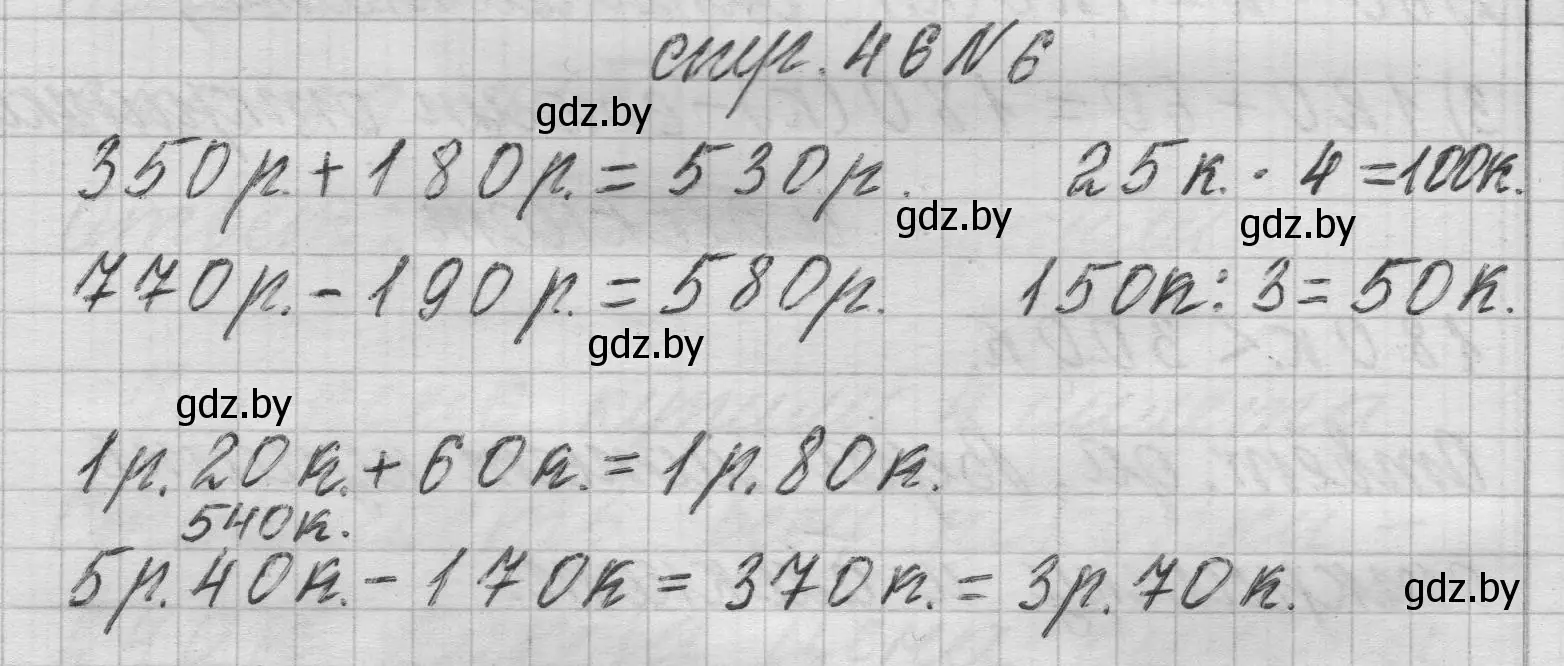 стр. 46 N 6
gdz.by
350р. + 180р. = 530р. 25к. · 4 = 100к.
gdz.by gdz.by
770р. - 190р. = 580р. 150к : 3 = 50к.
gdz.by
gdz.by
1р. 20к. + 60к. = 1р. 80к.
540к.
5р. 40к. - 170к = 370к. = 3р. 70к.
gdz.by